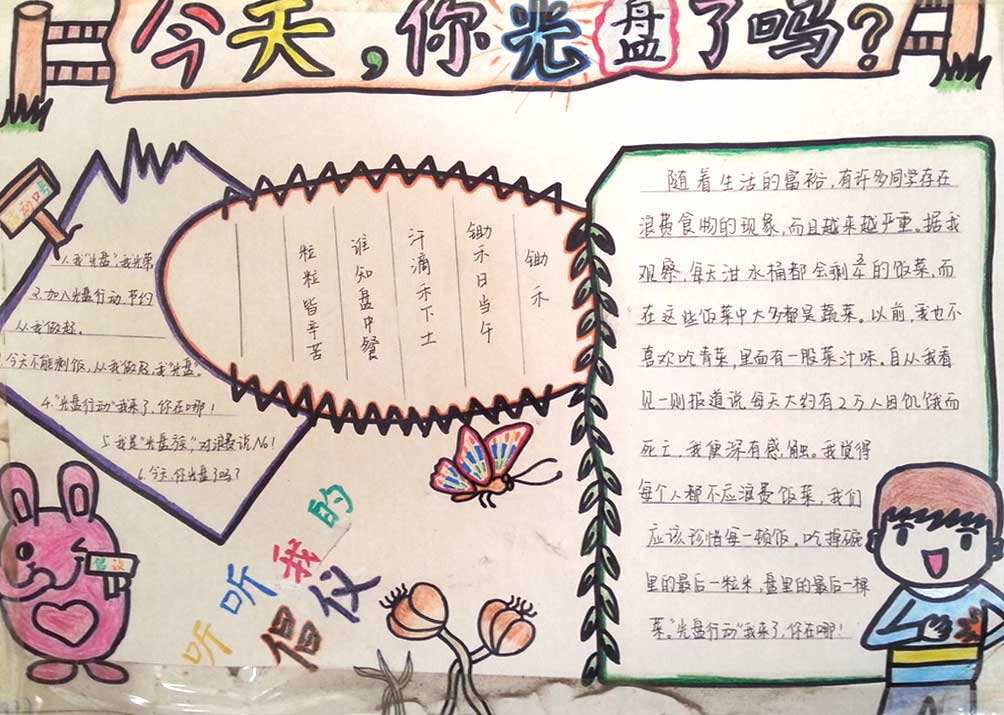 今天，你光盘了吗？
口号
1.我"光盘"，我光荣
2.加入光盘行动 节约
从我做起。
今天不能剩饭，从我做起，我"光盘"。
4."光盘行动"我来了，你在哪！
5.我是"光盘族"，对浪费说No！
6.今天，你光盘了吗？
锄禾
锄禾日当午
汗滴禾下土
谁知盘中餐
粒粒皆辛苦
随着生活的富裕，有许多同学存在
浪费食物的现象，而且越来越严重。据我
观察，每天泔水桶都会剩余的饭菜，而
在这些饭菜中大多都是蔬菜。以前，我也不
喜欢吃青菜，里面有一股菜汁味。自从我看
见一则报道说每天大约有2万人因饥饿而
死亡，我便深有感触。我觉得
每个人都不应浪费饭菜，我们
应该珍惜每一顿饭。吃掉碗
里的最后一粒米，盘里的最后一棵
菜。"光盘行动"我来了，你在哪！
倡议
听听我的
倡仪